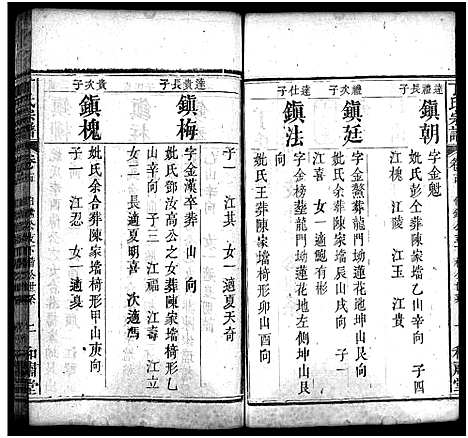 達禮長子
鎮朝
字金魁
妣氏彭仝葬陳家墻乙山辛向 子四
江槐 江陵 江玉 江貴
禮次子
鎮廷
字金鰲葬龍門坳蓮花地坤山艮向
妣氏余葬陳家墻辰山戌向 子一
江喜 女一適鮑有彬
達仕子
鎮法
字金榜葬龍門坳蓮花地左側坤山艮向
妣氏王葬陳家墻卯山酉向
達貴長子
鎮梅
字金漢卒葬 山 向
妣氏鄧汝高公之女葬陳家墻椅形
山辛向 子三 江福 江壽 江立
女二 長適夏明喜 次適馮
貴次子
鎮槐
子一 江其 女一適夏天奇
妣氏余合葬陳家墻椅形甲山庚向
子一 江忍 女一適夏